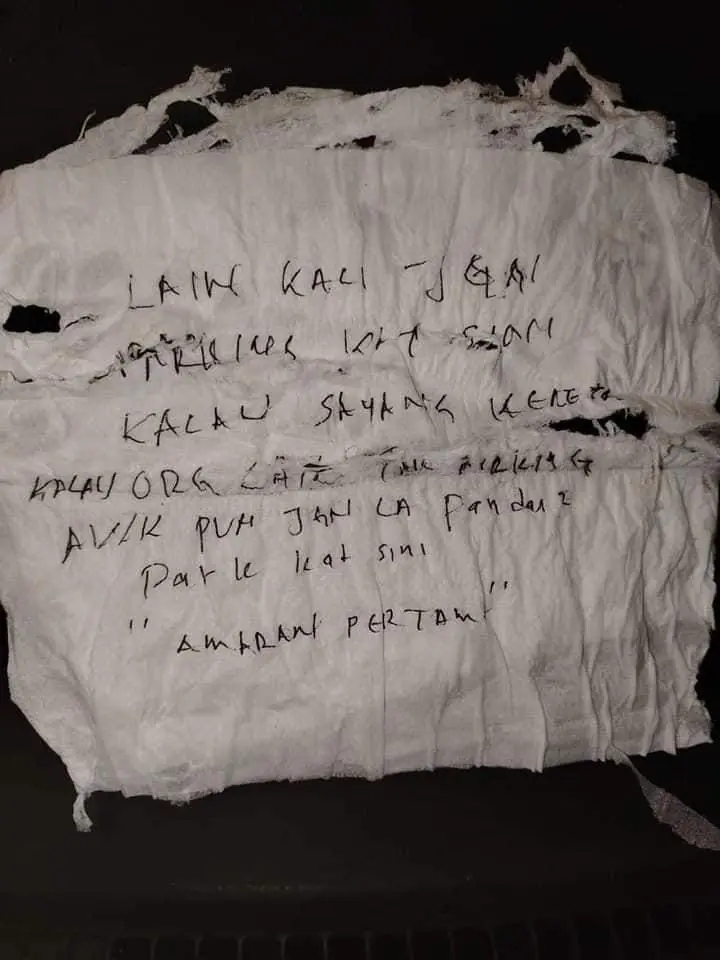 LAIN KALI JGN
PARKING KAT SINI
KALAU SAYANG KERETA
KALAU ORG LAIN TAK PARKING
AWAK PUN JGN LA Pandai2
Park kat sini
"AMARAN PERTAMA"